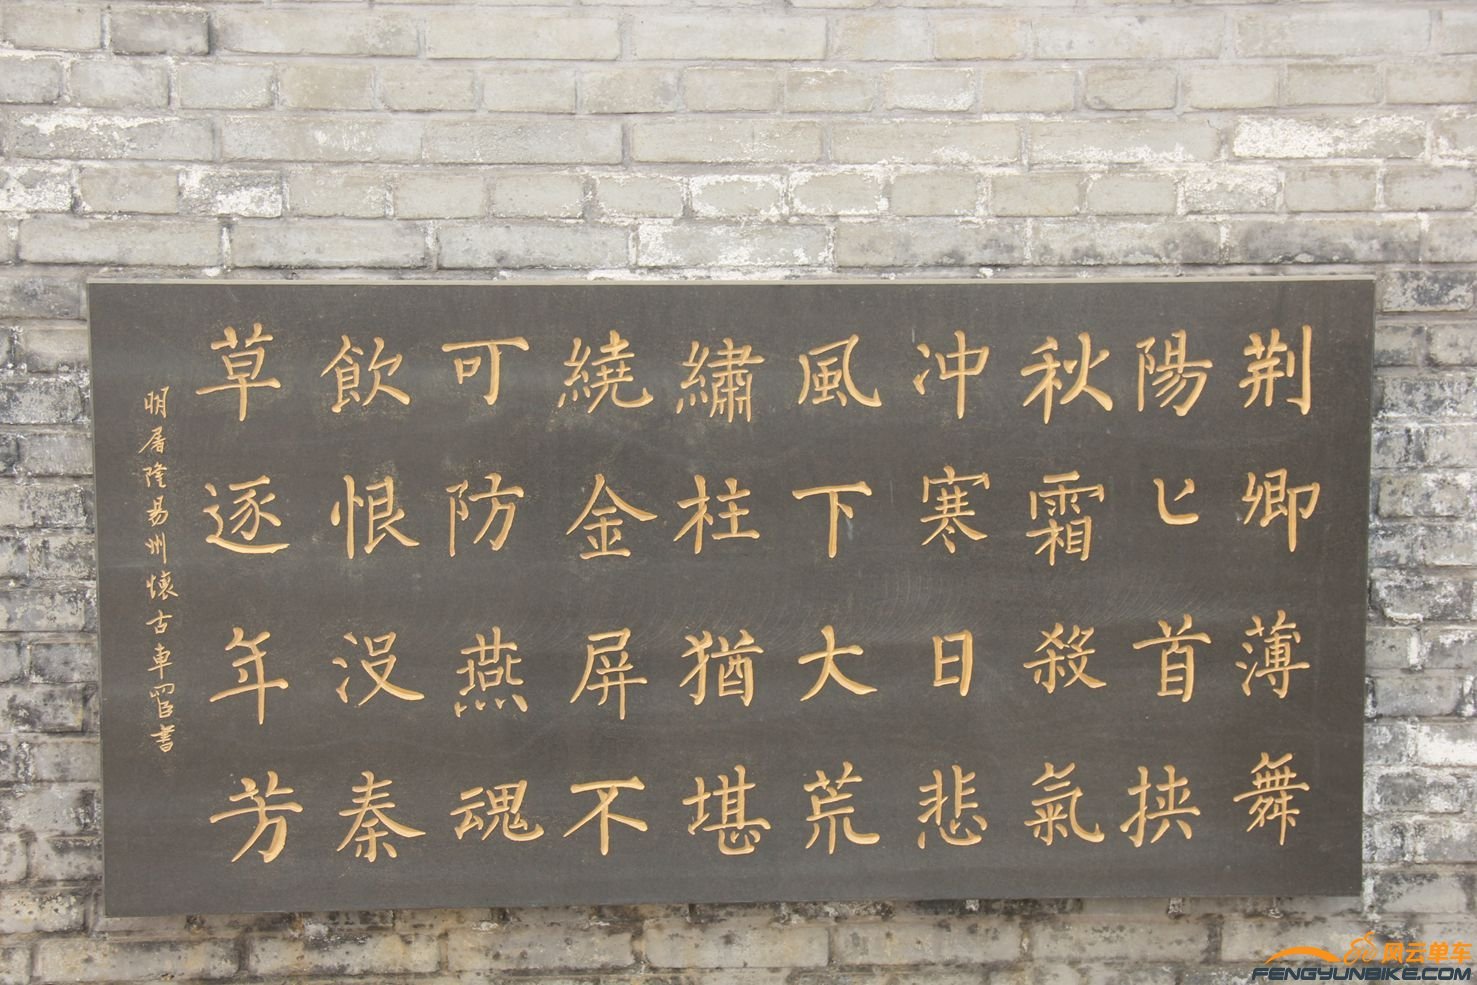 荆卿薄舞
陽匕首挟
秋霜殺氣
冲寒日悲
風下大荒
繡柱猶堪
繞金屏不
可防燕魂
飲恨没秦
草逐年芳
明屠隆易州懷古車書
风云单车
FENGYUNBIKE.COM